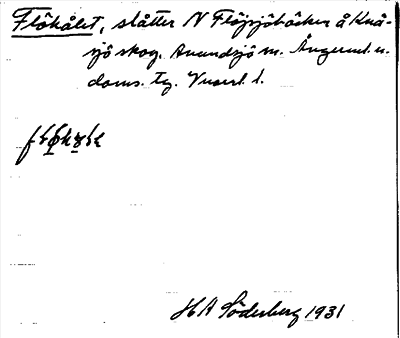 Flökålet, slåtter N Flöjsjöbäcken å Knä-
sjö skog. Anundsjö sn. Ångerml. n.
doms. Tg. Vnorl. l.
HA Söderberg 1931